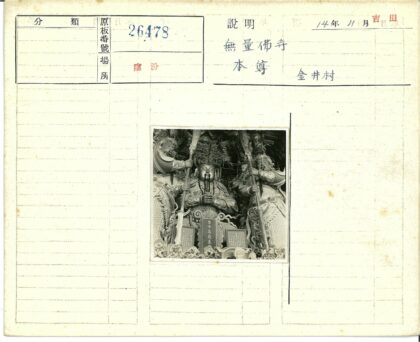 分類
原板番號
26478
場所
臨汾
說明
14年11月
吉田
無量佛寺
本尊
金井村